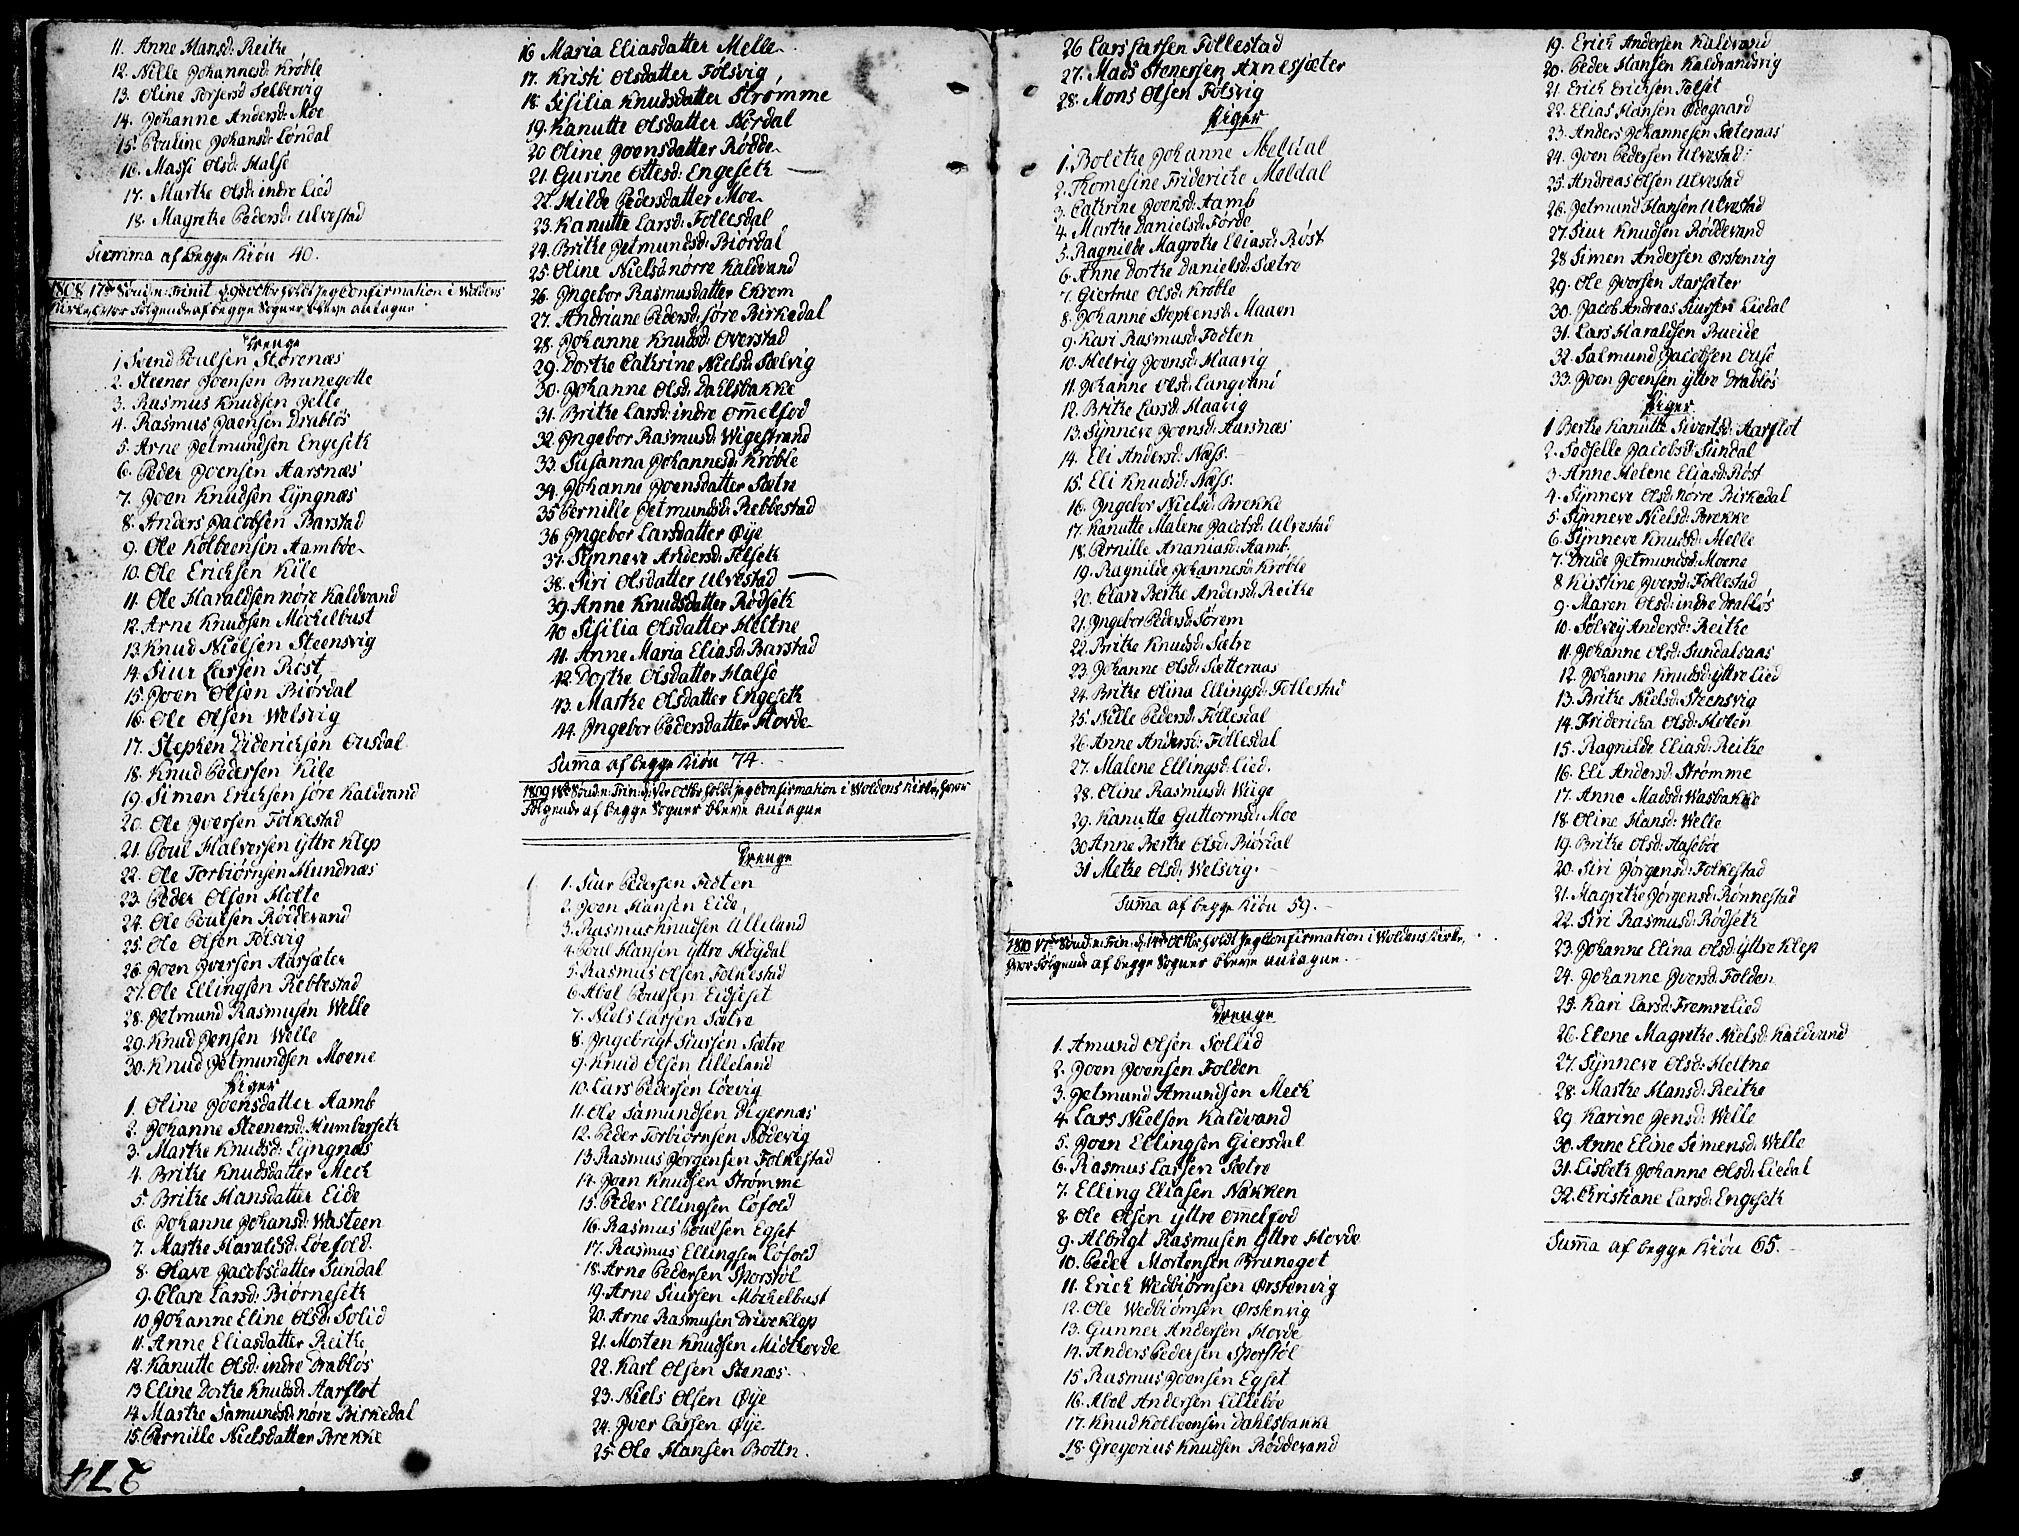 11. Anne Hansd: Reitke
12. Nille Johannesd: Krøble
13. Oline Torsersd Selbervig
14. Johanne Andersd: Moe
15. Pouline Johansd: Løndal
16. Massi Olsd: Halse
17. Martke Olsd: indre Lied
18. Magretke Pedersd: Ulvestad
Summa af begge Kiøn 40.
1808. 17de Sønd: n: Trinit d. 9de Octbr holdt Jeg Confirmation i Woldens
Kirke, hvor følgende af begge Sogner bleve antagne
Drenge
1 Svend Poulsen Storenæs
2. Steener Joensen Brunegotte
3. Rasmus Knudsen Jelle
4. Rasmus Joensen Drabløs
5. Arne Jetmundsen Engesetk
6. Peder Joensen Aarsnæs
7. Joen Knudsen Lyngnæs
8. Anders Jacobsen Barstad
9. Ole Kolbeensen Aamboe
10. Ole Ericksen Kile
11. Ole Haraldsen nøre Kaldvand
12. Arne Knudsen Møckelbust
13. Knud Nielsen Steensvig
14. Siur Larsen Røst
15. Joen Olsen Biørdal
16. Ole Olsen Welsvig
17. Stepken Didericksen Ousdal
18. Knud Pedersen Kile
19. Simen Ericksen søre Kaldvand
20. Ole Iversen Folkestad
21. Poul Halvorsen yttre Klep
22. Ole Torbiørnsen Mundnæs
23. Peder Olsen Holte
24. Ole Poulsen Røddevand
25. Ole Olsen Følsvig
26. Joen Iversen Aarsæter
27. Ole Ellingsen Rebbestad
28. Jetmund Rasmusen Welle
29. Knud Jensen Welle
30. Knud Jetmundsen Moene
Piger
1. Oline Joensdatter Aamb
2. Johanne Steenersd: Humbersetk
3. Martke Knudsd: Lyngnæs
4. Britke Knudsdatter Meek
5. Britke Hansdatter Eide
6. Johanne Johansd: Wasteen
7. Martke Haraldsd: Løefold.
8. Olave Jacobsdatter Sundal
9. Clare Larsd: Biørnesetk
10 Johanne Eline Olsd: Solid
11. Anne Eliasdatter Reitke
12. Kanutte Olsd: indre Drabløs
13 Eline Dortke Knudsd: Aarfløt
14. Martke Samundsd: nøre Birkedal
15. Pernille Nielsdatter Brekke
16 Maria Eliasdatter Melle
17. Kristi Olsdatter Følsvig
18. Sisilia Knudsdatter Strømme
19. Kanutte Olsdatter Nordal
20 Oline Joensdatter Rødde
21. Gurine Ottesd: Engesetk
22. Hilde Pedersdatter Moe
23. Kanutte Larsd: Follesdal
24. Britke Jetmundsd: Biørdal
25. Oline Nielsd nørre Kaldvand
26. Ingebor Rasmusdatter Ekrem
27. Andriane Pedersd: søre Birkedal
28. Johanne Knudsd: Overstad
29. Dortke Catkrine Nielsd: Sælvig
30. Johanne Olsd: Dahlsbakke
31. Britke Larsd: indre Om̅elfod
32. Ingebor Rasmusd: Wigestrand
33. Susanna Johannesd: Krøble
34. Johanne Joensdatter Sætre
35 Pernille Jetmundsd: Rebbestad
36 Ingebor Larsdatter Øÿe
37. Synneve Andersd: Følsetk
38. Siri Olsdatter Ulvestad
39. Anne Knudsdatter Rødsetk
40 Sisilia Olsdatter Heltne
41. Anne Maria Eliasd: Barstad
42. Dortke Olsdatter Halse
43. Martke Olsdatter Engesetk
44. Ingebor Pedersdatter Hovde
Sum̅a af begge Kiøn 74.
1809 18de Sønd: n: Trin: d. 1ste Octbr holdt Jeg Confirmation i Woldens Kirke, hvor
følgende af begge Sogner bleve antagne
Drenge
1. Siur Pedersen Fioten
2. Joen Hansen Eide
3. Rasmus Knudsen Lilleland
4. Poul Hansen yttre Høydal
5. Rasmus Olsen Folkestad
6. Abel Poulsen Eidseset
7. Niels Larsen Sætre
8. Ingebrigt Siursen Sætre
9. Knud Olsen Lilleland
10. Lars Pedersen Løevig
11. Ole Samundsen Digernæs
12. Peder Torbiørnsen Nødevig
13 Rasmus Jørgensen Folkestad
14. Joen Knudsen Strømme
15. Peder Ellingsen Løfold
16. Rasmus Poulsen Egset
17. Rasmus Ellingsen Løfold
18. Arne Pedersen Sporstøl
19. Arne Siursen Møckelbust
20. Arne Rasmusen Driveklep
21. Morten Knudsen Midthovde
22. Karl Olsen Stenæs
23. Niels Olsen Øÿe
24. Iver Larsen Øÿe
25. Ole Hansen Bottn.
26 Lars Larsen Follestad
27. Mads Stenersen Arnesæter
28. Mons Olsen Følsvig
Piger
1. Boletke Johanne Meldal
2. Thomesine Fridericke Meldal
3. Catkrine Joensd: Aamb
4. Martke Danielsd: Førde
5. Ragnilde Magretke Eliasd: Røst
6. Anne Dortke Danielsd: Sætre
7. Giertrue Olsd: Krøble
8. Johanne Stepkensd: Maaen
9. Kari Rasmusd: Fioten
10. Helvig Joensd: Haavig
11. Johanne Olsd: Lungvand
12. Britke Larsd: Haavig
13. Synneve Joensd: Aarsnæs
14. Eli Andersd: Næss.
15. Eli Knudsd: Næss.
16. Ingebor Nielsd: Brekke
17. Kanutte Malene Jacobsd: Ulvestad
18. Pernille Ananiasd: Aamb.
19. Ragnilde Johannesd: Krøble
20. Clare Bertke Andersd: Reitke
21. Ingebor Pedersd: Sørem
22. Britke Knudsd: Sætre
23. Johanne Olsd: Sætteraas
24. Britke Olina Ellingsd: Follestad
25. Nille Pedersd: Follesdal
26. Anne Andersd: Follesdal
27. Malene Ellingsd: Lied.
28. Oline Rasmusd: Wiige
29. Kanutte Guttormsd: Moe
30 Anne Bertke Olsd: Biørdal
31 Metke Olsd: Welsvig.
Sum̅a af begge Kiøn 59.
1810 17de Sønd: n: Trin: d. 14de Octbr holdt Jeg Confirmation i Woldens Kirke,
hvor følgende af begge Sogner bleve antagne.
Drenge
1. Amund Olsen Sollid
2. Joen Joensen Folden
3. Jetmund Amundsen Meek
4. Lars Nielsen Kaldvand
5. Joen Ellingsen Giersdal
6. Rasmus Larsen Sætre
7. Elling Eliasen Nakken
8. Ole Olsen yttre Om̅elfod
9. Albrigt Rasmusen Yttre Hovde
10. Peder Mortensen Bruneget
11. Erick Wedbiørnsen Ørstenvig
12. Ole Wedbiørnsen Ørstenvig
13. Gunner Andersen Hovde
14. Anders Pedersen Sporstøl
15. Rasmus Joensen Egset
16. Abel Andersen Lillebøe
17. Knud Kolbeensen Dahlsbakke
18. Gregorius Knudsen Røddevand
19. Erick Andersen Kaldvand
20. Peder Hansen Kaldvandsvig
21. Erick Ericksen Folset
22. Elias Hansen Ødegaard
23. Anders Johannesen Sæteraas
24. Joen Pedersen Ulvestad
25. Andreas Olsen Ulvestad
26. Jetmund Hansen Ulvestad
27. Siur Knudsen Røddevand
28 Simen Andersen Ørstenvig
29. Ole Iversen Aarsæter
30. Jacob Andreas Siursen Liedal
31. Lars Haraldsen Bueide
32. Salmund Jacobsen Ouse
33. Joen Joensen yttre Drabløs
Piger
1 Bertke Kanutte Sivertsd: Aarflot
2. Sødselle Jacobsd: Sundal
3. Anne Helene Eliasd: Røst
4. Synneve Olsd: nørre Birkedal
5. Synneve Nielsd: Brekke
6. Synneve Knudsd: Melle
7. Brude Jetmundsd: Moene
8 Kirstine Iversd: Follestad
9. Maren Olsd: indre Drabløs
10. Sølvey Andersd: Reitke
11. Johanne Olsd: Sundalsaas
12. Johanne Knudsd: yttre Lied
13. Britke Nielsd: Steensvig
14. Fridericka Olsd: Holen
15. Ragnilde Eliasd: Reitke
16. Eli Andersd: Strømme
17. Anne Madsd: Wasbakke
18. Oline Hansd: Welle
19. Britke Olsd: Aasebøe
20. Siri Jørgensd: Folkestad
21. Magretke Jørgensd: Rønnestad
22. Siri Rasmusd: Rødsetk
23. Johanne Elina Olsd: yttre Klep
24. Johanne Iversd: Folden
25. Kari Larsd: Fremrelied
26. Elene Magretke Nielsd: Kaldvand
27. Synneve Olsd: Heltne
28. Martke Hansd: Reitke
29. Karine Jensd: Welle
30. Anne Eline Simensd: Welle
31. Lisbetk Johanne Olsd: Liedal
32. Christiane Larsd: Engesetk
Sum̅a af begge Kiøn 65.
274